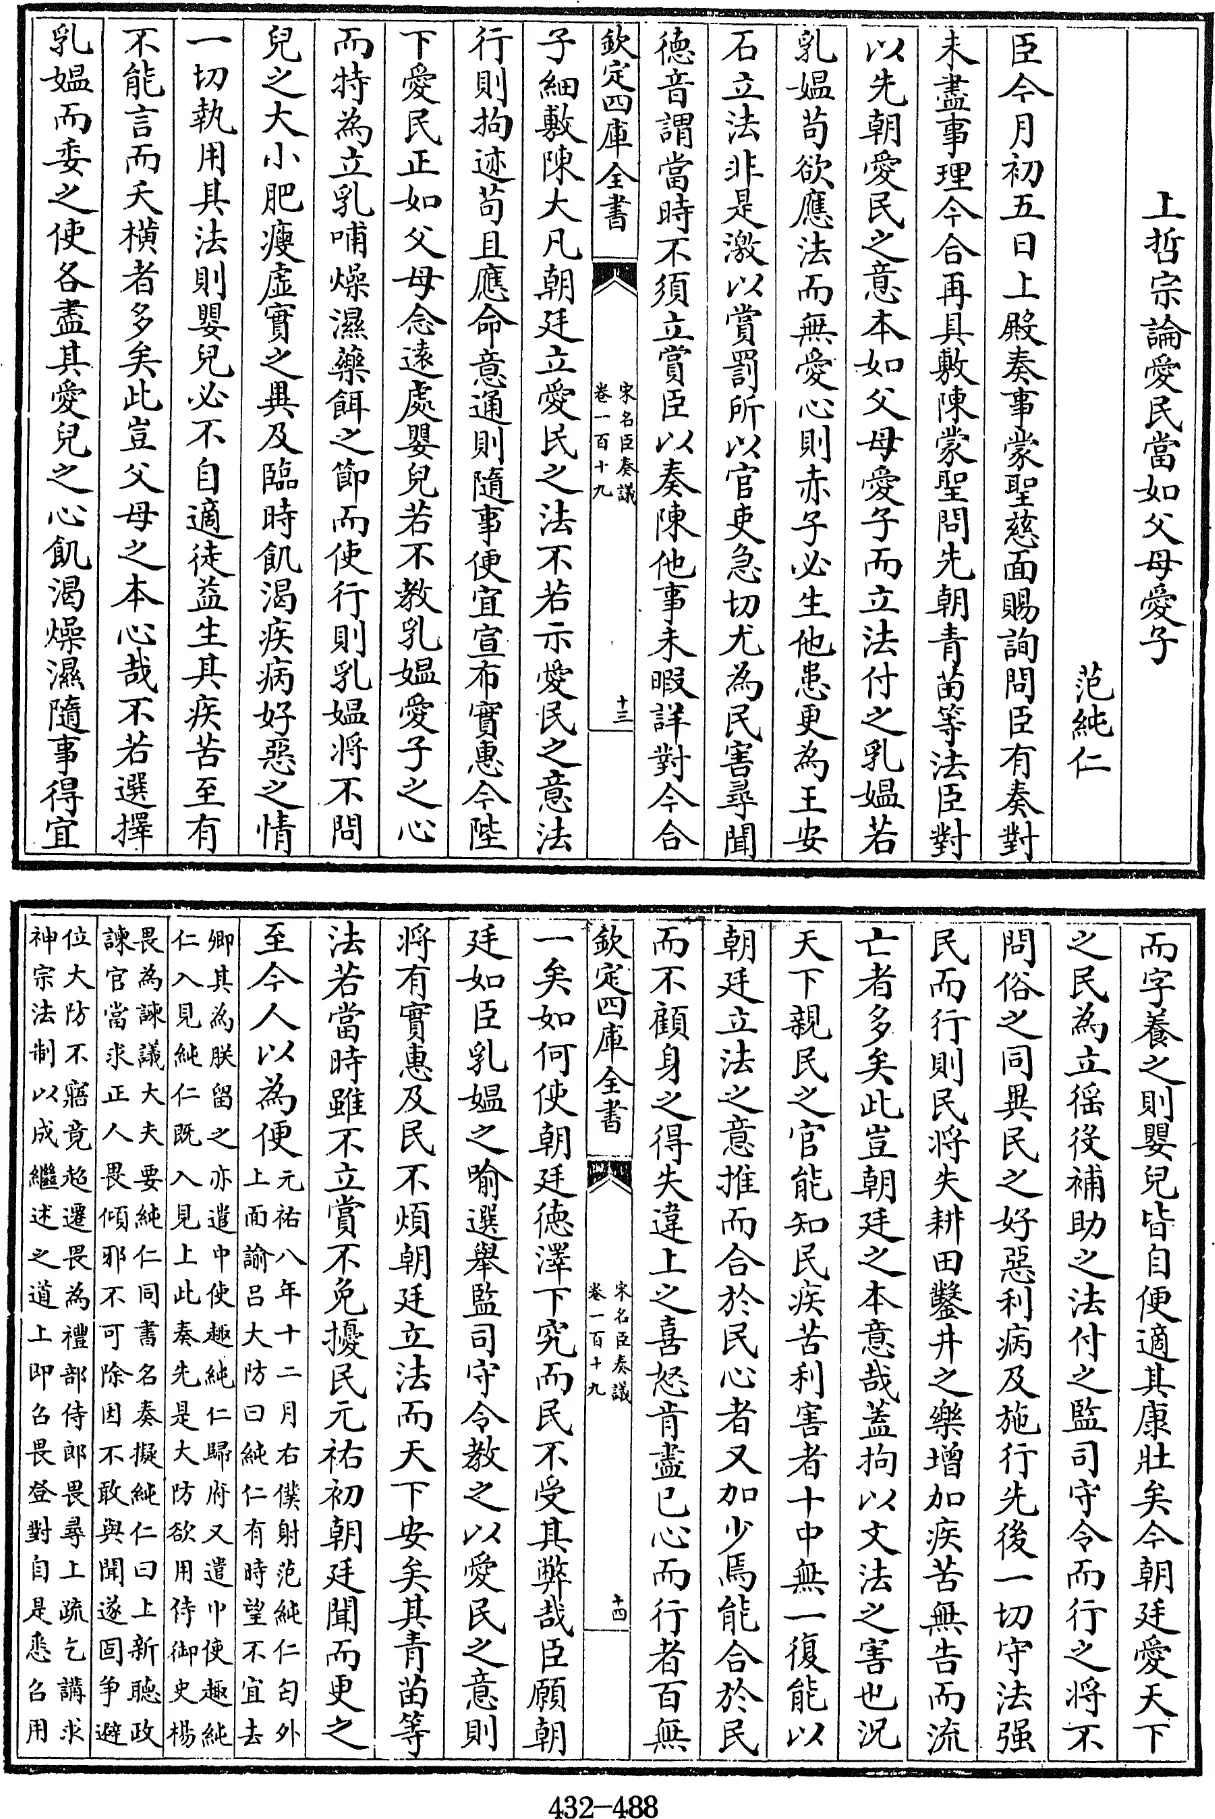 上哲宗論愛民當如父母愛子
范純仁
臣今月初五日上殿奏事蒙聖慈面賜詢問臣有奏對
未盡事理今合再具敷陳蒙聖問先朝青苗等法臣對
以先朝愛民之意本如父母愛子而立法付之乳媪若
乳媪苟欲應法而無愛心則赤子必生他患更為王安
石立法非是激以賞罰所以官吏急切尤為民害尋聞
德音謂當時不須立賞臣以奏陳他事未暇詳對今合
欽定四庫全書
宋名臣奏議
卷一百十九
十三
子細敷陳大凡朝廷立愛民之法不若示愛民之意法
行則拘迹苟且應命意通則隨事便宜宣布實惠今陛
下愛民正如父母念遠處嬰兒若不教乳媪愛子之心
而特為立乳哺燥濕藥餌之節而使行則乳媪將不問
兒之大小肥瘦虛實之異及臨時飢渴疾病好惡之情
一切執用其法則嬰兒必不自適徒益生其疾苦至有
不能言而夭橫者多矣此豈父母之本心哉不若選擇
乳媪而委之使各盡其愛兒之心飢渴燥濕隨事得宜
而字養之則嬰兒皆自便適其康壯矣今朝廷愛天下
之民為立徭役補助之法付之監司守令而行之將不
問俗之同異民之好惡利病及施行先後一切守法强
民而行則民將失耕田鑿井之樂增加疾苦無告而流
亡者多矣此豈朝廷之本意哉蓋拘以文法之害也況
天下親民之官能知民疾苦利害者十中無一復能以
朝廷立法之意推而合於民心者又加少焉能合於民
而不顧身之得失違上之喜怒肯盡已心而行者百無
欽定四庫全書
宋名臣奏議
卷一百十九
十四
一矣如何使朝廷德澤下究而民不受其弊哉臣願朝
廷如臣乳媪之喻選舉監司守令教之以愛民之意則
將有實惠及民不煩朝廷立法而天下安矣其青苗等
法若當時雖不立賞不免擾民元祐初朝廷聞而更之
至今人以為便
元祐八年十二月右僕射范純仁匄外
上面諭吕大防曰純仁有時望不宜去
卿其為朕留之亦遣中使趣純仁歸府又遣巾使趣純
仁入見純仁既入見上此奏先是大防欲用侍御史楊
畏為諫議大夫要純仁同書名奏擬純仁曰上新聽政
諫官當求正人畏傾邪不可除因不敢與聞遂固争避
位大防不寤竟超遷畏為禮部侍郎畏尋上疏乞講求
神宗法制以成繼述之道上即召畏登對自是悉召用
432-488